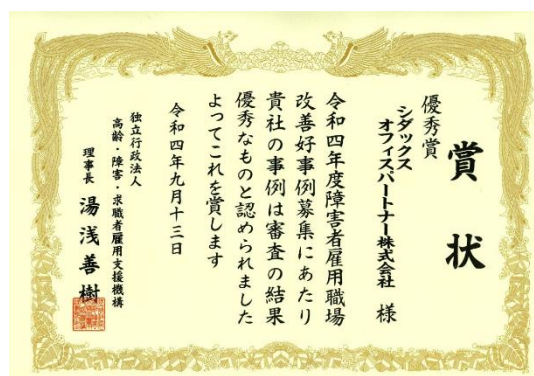 賞状
優秀賞
シダックス
オフィスパートナー株式会社 様
令和四年度障害者雇用職場
改善好事例募集にあたり
貴社の事例は審査の結果
優秀なものと認められました
よってこれを賞します
令和四年九月十三日
独立行政法人
高齢・障害・求職者雇用支援機構
理事長 湯浅善樹